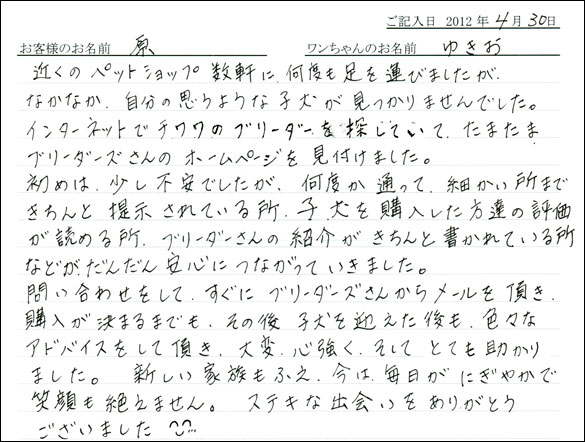 ご記入日 2012年4月30日
お客様のお名前 原 ワンちゃんのお名前 ゆきお
近くのペットショップ数軒に、何度も足を運びましたが、
なかなか、自分の思うような子犬が見つかりませんでした。
インターネットでチワワのブリーダーを探していて、たまたま
ブリーダーズさんのホームページを見付けました。
初めは、少し不安でしたが、何度か通って、細かい所まで
きちんと提示されている所、子犬を購入した方達の評価
が読める所、ブリーダーさんの紹介がきちんと書かれている所
などが、だんだん安心につながっていきました。
問い合わせをして、すぐにブリーダーズさんからメールを頂き、
購入が決まるまでも、その後子犬を迎えた後も、色々な
アドバイスをして頂き、大変、心強く、そしてとても助かり
ました。 新しい家族もふえ、今は、毎日がにぎやかで
笑顔も絶えません。 ステキな出会いをありがとう
ございました